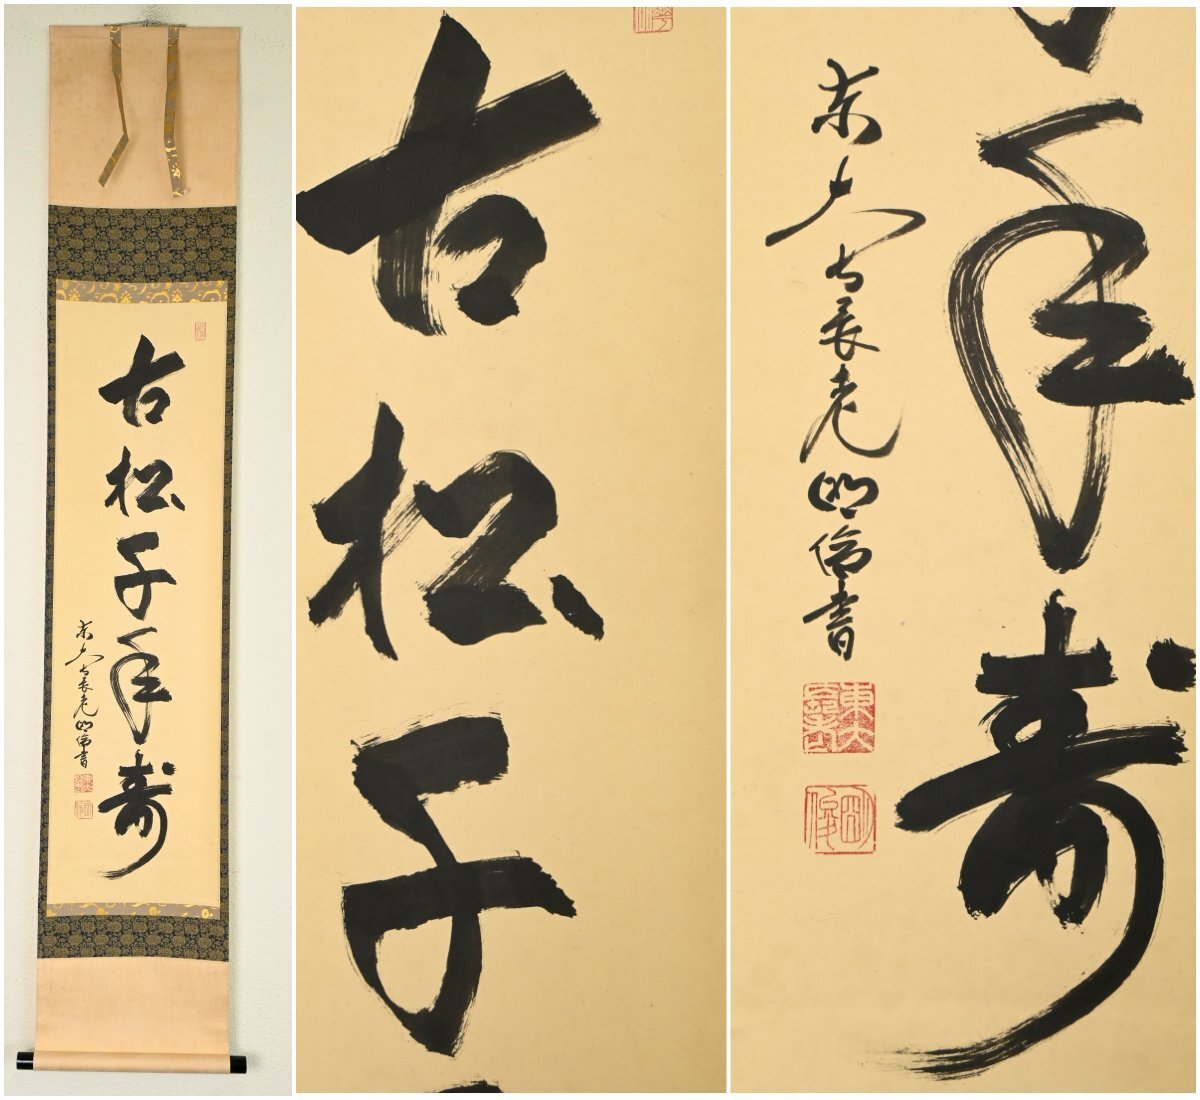 古松千年寿
東大寺長老明俊書
古松千
年寿
東大寺長老明俊書
明俊